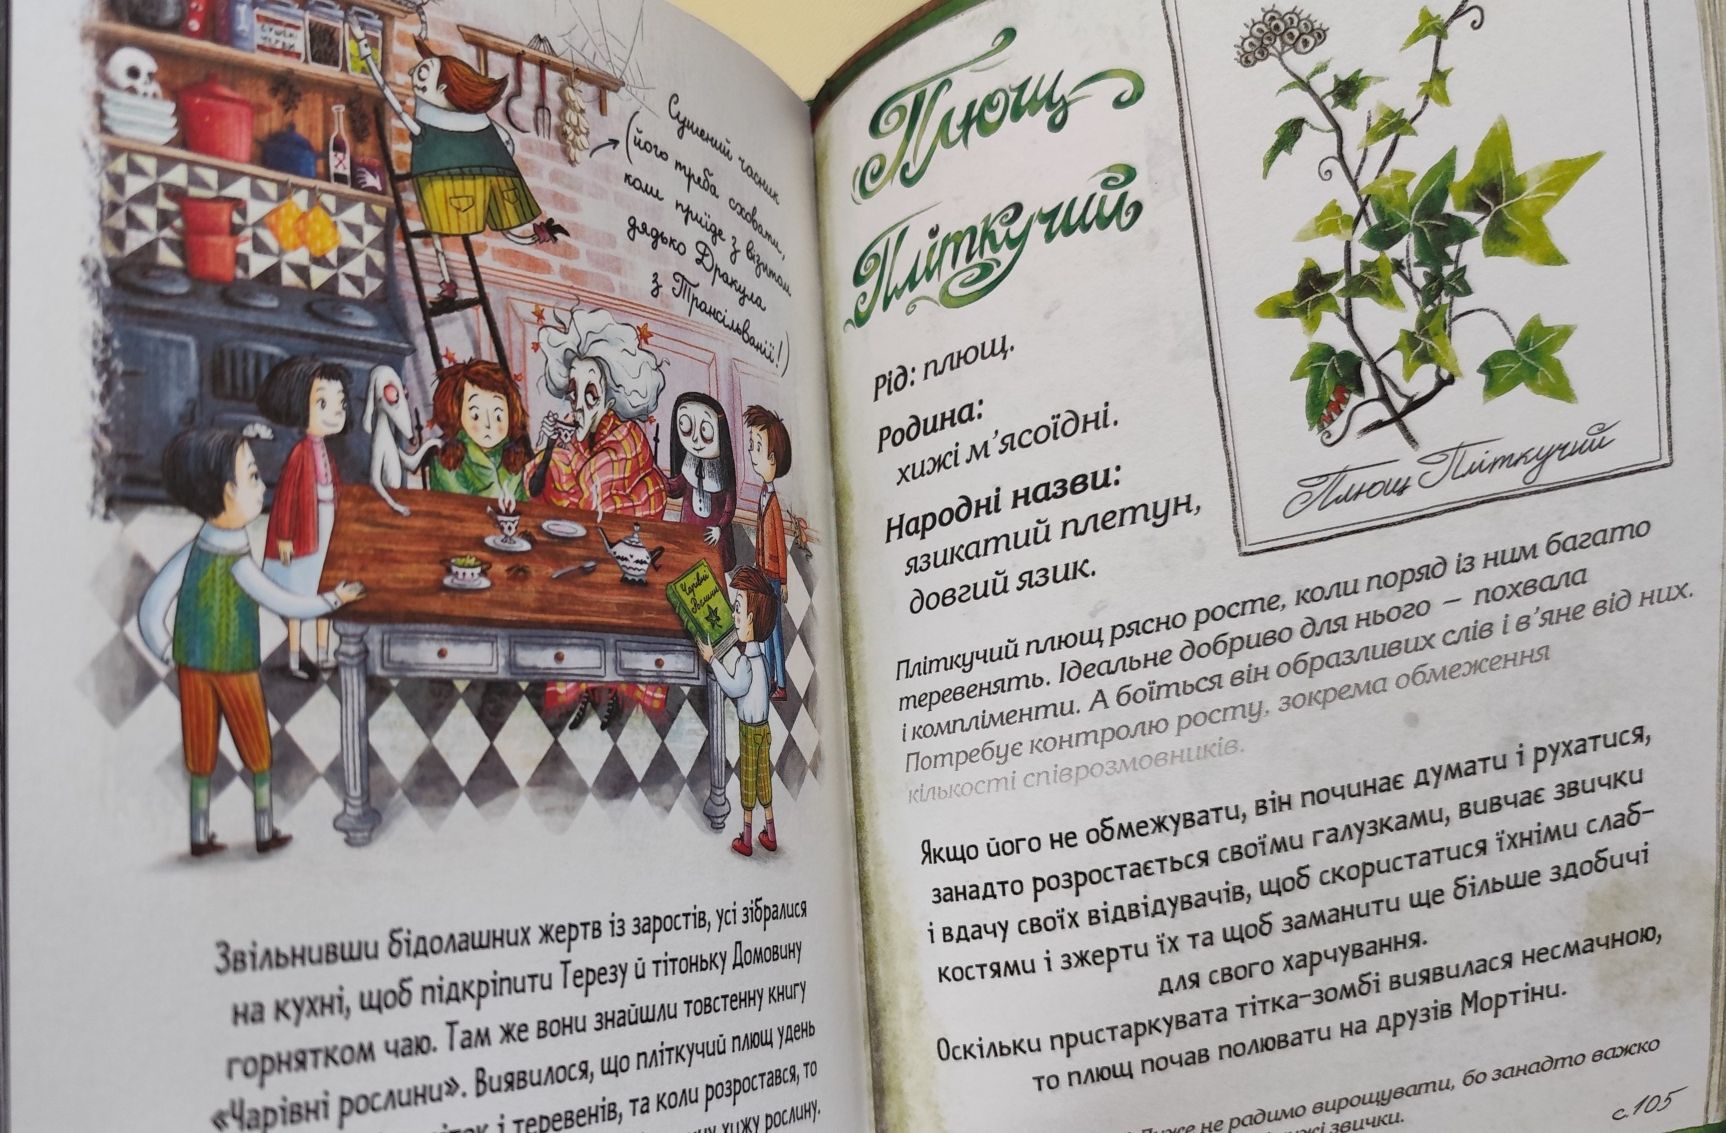 СУШЕНІ
ЧЕРВИ
Сушений часник
(його треба сховати,
коли приїде з візитом
дядько Дракула
з Трансільванії!)
Чарівні
Рослини
Звільнивши бідолашних жертв із заростів, усі зібралися
на кухні, щоб підкріпити Терезу й тітоньку Домовину
горнятком чаю. Там же вони знайшли товстенну книгу
«Чарівні рослини». Виявилося, що пліткучий плющ удень
і теревенів, та коли розростався, то
хижу рослину.
Плющ
Пліткучий
Плющ Пліткучий
Рід: плющ.
Родина:
хижі м’ясоїдні.
Народні назви:
язикатий плетун,
довгий язик.
Пліткучий плющ рясно росте, коли поряд із ним багато
теревенять. Ідеальне добриво для нього – похвала
і компліменти. А боїться він образливих слів і в’яне від них.
Потребує контролю росту, зокрема обмеження
кількості співрозмовників.
Якщо його не обмежувати, він починає думати і рухатися,
занадто розростається своїми галузками, вивчає звички
і вдачу своїх відвідувачів, щоб скористатися їхніми слаб-
костями і зжерти їх та щоб заманити ще більше здобичі
для свого харчування.
Оскільки пристаркувата тітка-зомбі виявилася несмачною,
то плющ почав полювати на друзів Мортіни.
не радимо вирощувати, бо занадто важко
звички.
с.105